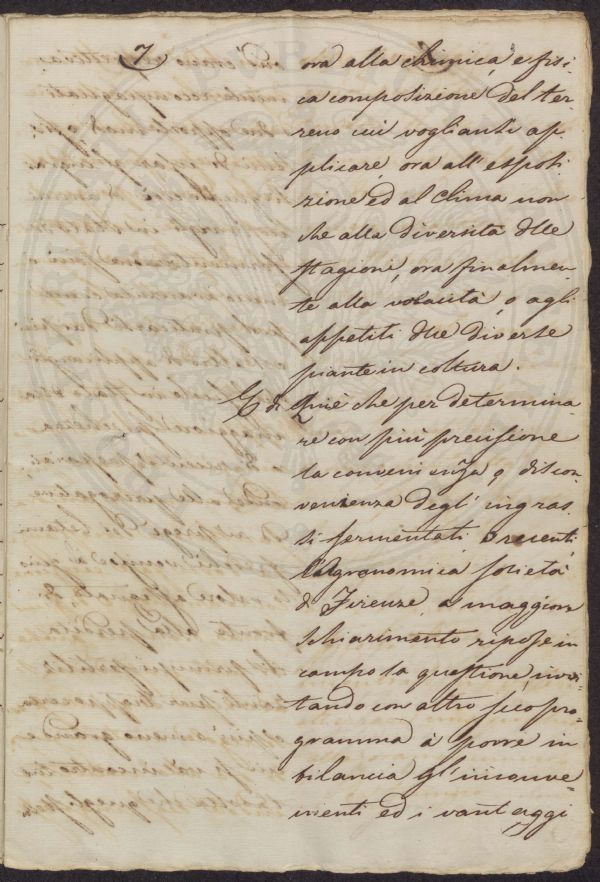 7
ora alla chimica, e fisi-
ca composizione del ter-
reno cui voglianti ap-
plicare, ora all'esposi-
zione ed al clima non
che alla diversità delle
stagioni, ora finalmen-
te alla voracità, o agli
appetiti delle diverse
piante in coltura.
E di quì è che per determina-
re con più precisione
la convenienza o discon-
venienza degl'ingras-
si fermentati, o recenti,
l'Agronomica società
di Firenze, a maggior
schiarimento ripose in
campo la questione, invi-
tando con altro suo pro-
gramma a porre in
bilancia gl'inconve-
nienti ed i vantaggi